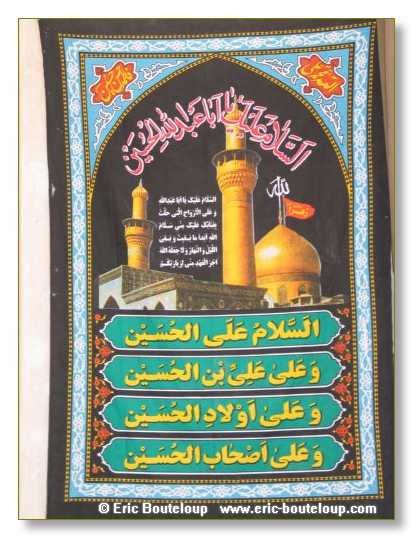 اَلسَّلامُ عَلَيْكَ يا اَبا عَبْدِاللهِ الْحُسَيْن
الله
السَّلامُ عَلَيكَ يا اَبا عَبدِالله
وَ عَلَى الْاَرْواحِ الَّتي حَلَّتْ
بِفِنائِكَ عَلَيْكَ مِنّي سَلامُ
اللهِ اَبَداً ما بَقيتُ وَ بَقِيَ
اللَّيْلُ وَ النَّهارُ وَ لا جَعَلَهُ اللهُ
آخِرَ الْعَهْدِ مِنّي لِزِيارَتِكُمْ
اَلسَّلامُ عَلَى الْحُسَيْن
وَ عَلىٰ عَلِىِّ بْنِ الْحُسَيْن
وَ عَلىٰ اَوْلادِ الْحُسَيْن
وَ عَلىٰ اَصْحابِ الْحُسَيْن
© Eric Bouteloup www.eric-bouteloup.com